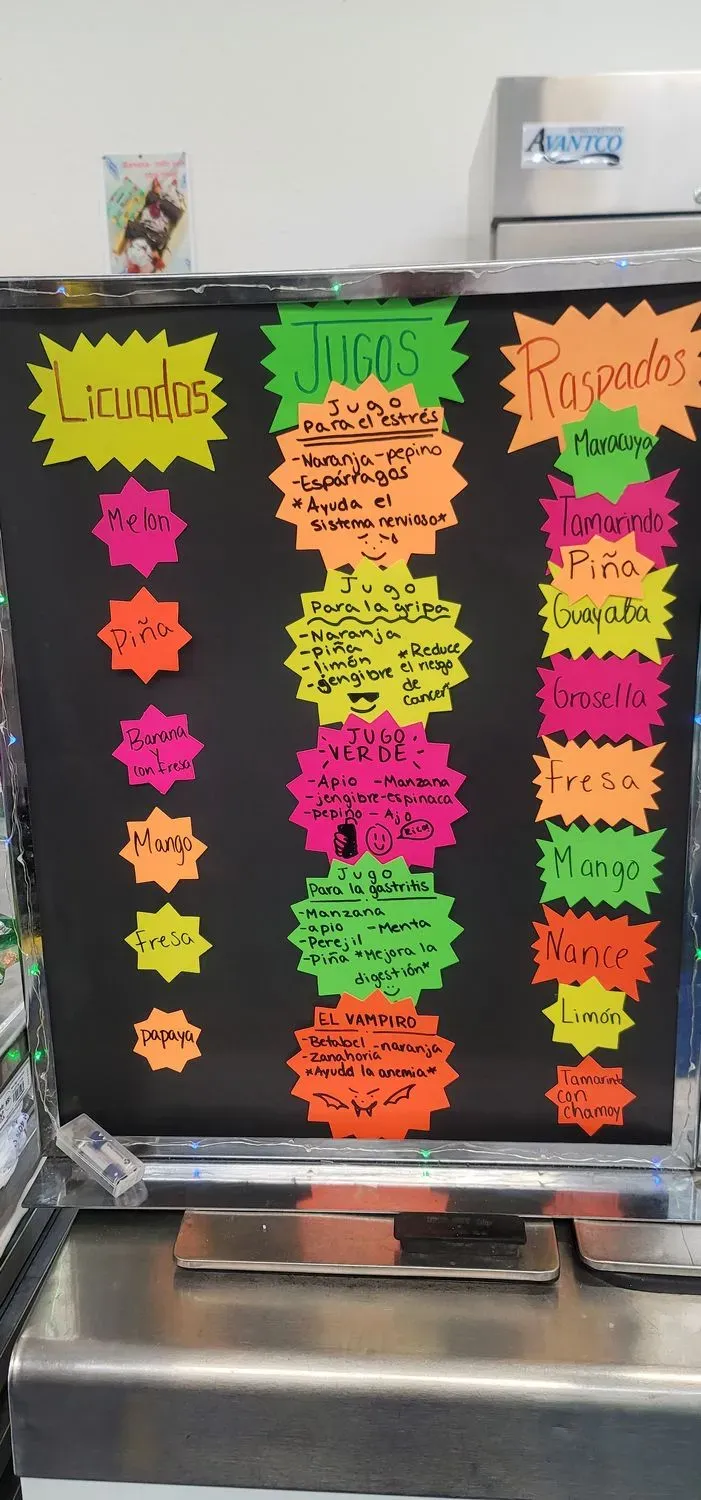 AVANTCO
Licuados
Melon
Piña
Banana
y
con fresa
Mango
fresa
papaya
JUGOS
Jugo
Para el estrés
-Naranja -pepino
-Espárragos
*Ayuda el
sistema nervioso*
Jugo
Para la gripa
-Naranja
-piña
-limón
-jengibre
*Reduce
el riesgo
de
cancer*
JUGO
VERDE
-Apio -Manzana
-jengibre-espinaca
-pepino - Ajo
Rico!
Jugo
Para la gastritis
-Manzana
-apio -Menta
-Perejil
-Piña *Mejora la
digestión*
EL VAMPIRO
-Betabel -naranja
-zanahoria
*Ayuda la anemia*
Raspados
Maracuya
Tamarindo
Piña
Guayaba
Grosella
Fresa
Mango
Nance
Limón
Tamarindo
con
chamoy